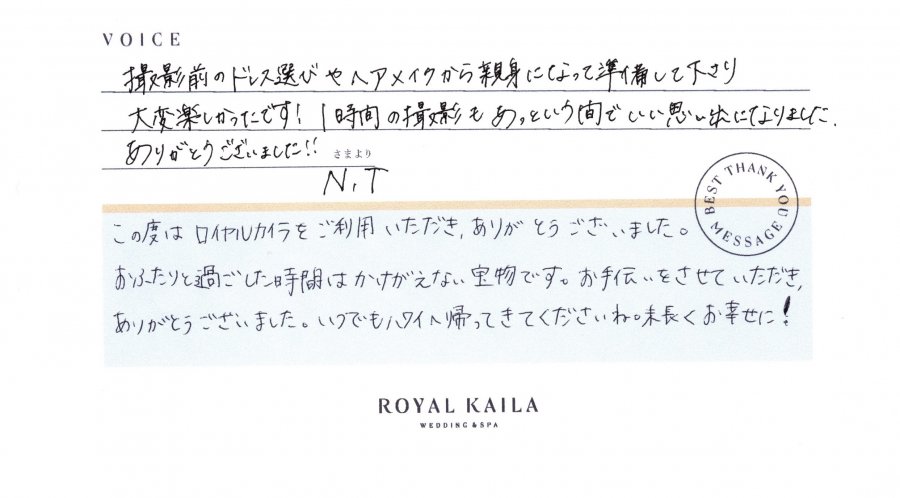 VOICE
撮影前のドレス選びやヘアメイクから親身になって準備して下さり
大変楽しかったです! 1時間の撮影もあっという間でいい思い出になりました.
ありがとうございました!!
さまより
N.T
BEST THANK YOU MESSAGE
この度はロイヤルカイラをご利用いただき,ありがとうございました。
おふたりと過ごした時間はかけがえない宝物です。お手伝いをさせていただき,
ありがとうございました。いつでもハワイへ帰ってきてくださいね。末長くお幸せに!
ROYAL KAILA
WEDDING & SPA